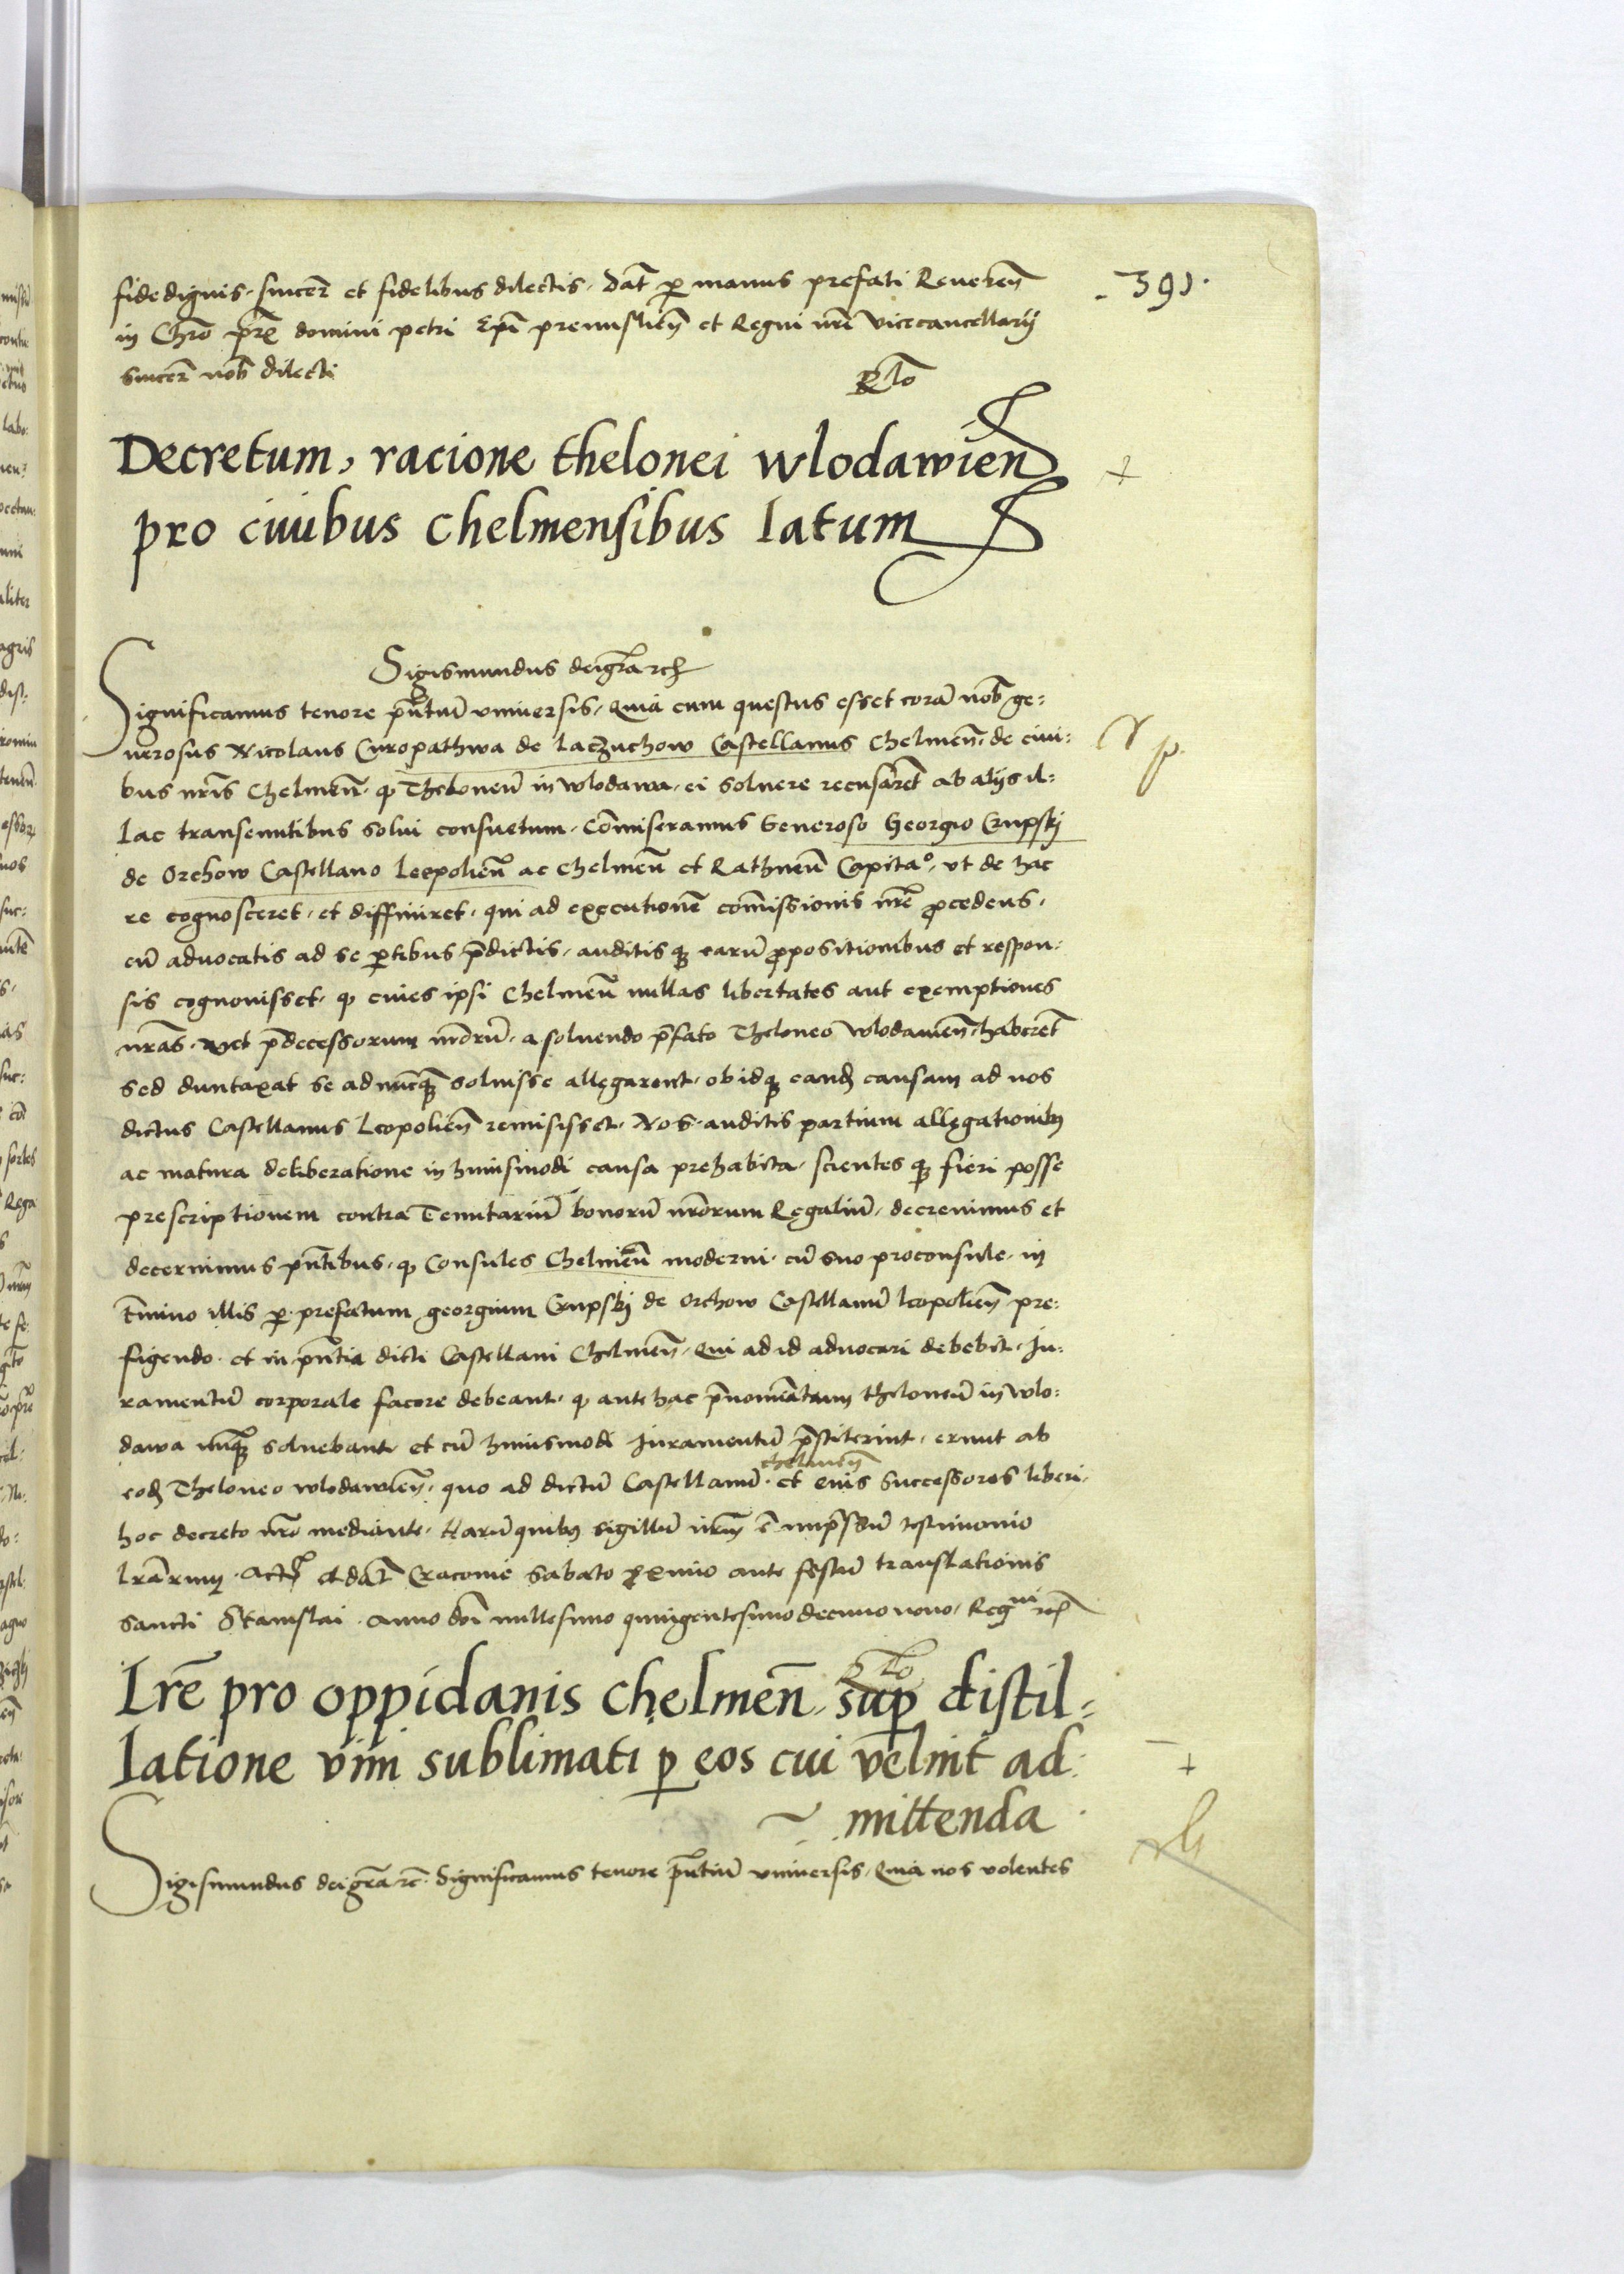 fidedignis. sincer̃ et fidelibus dilectis. Dat̃ ꝑ manus prefati Reveren̄
in Chrō pr̃e domini petri Ep̃i premislien̄ et Regni nr̃i vicecancellarij
sincer̃ nob̃ dilecti
Rl̃o
- 391.
Decretum, racione thelonei wlodawien̄
pro civibus chelmensibus latum
Sigismundus dei gr̃a rc̃
Significamus tenore pñtiũ vniuersis. Quia cum questus esset corã nob̃ ge:
nerosus Nicolaus Curopathwa de laczuchow Castellanus Chelmen̄. de ciui:
bus nr̃is Chelmen̄. ꝙ Theloneũ in wlodawa. ei soluere recusarẽt ab alijs il:
lac transeuntibus solui consuetum. Cõmiseramus Generoso Georgio Crupskj
de Orchow Castellano leopolien̄ ac chelmen̄ et Rathnen̄ Capitaº. vt de hac
re cognosceret. et diffiniret. qui ad executionẽ cõmissionis nr̃e ꝓcedens.
cũ advocatis ad se ꝑtibus p̃dictis. auditis qꝫ earũ ꝓpositionibus et respon:
sis cognouisset. ꝙ ciues ipsi Chelmen̄ nullas libertates aut exemptiones
nr̃as. vel p̃decessorum nr̃orũ. a soluendo p̃fato Theloneo wlodauien̄. haberẽt
sed duntaxat se ad nũcqꝫ soluisse allegarent. ob idqꝫ eand̃ causam ad nos
dictus Castellanus Leopolien̄ remisisset. Nos auditis partium allegationibꝰ
ac matura deliberatione in huiusmodi causa prehabita. scientes qꝫ fieri posse
prescriptionem contra Tenutariũ bonorũ nr̃orum Regaliũ. decreuimus et
decernimus pñtibus. ꝙ Consules Chelmen̄ moderni. cũ suo proconsule. in
t̃mino illis ꝑ prefatum georgium Crupskj de Orchow Castellanũ leopolien̄ pre:
figendo. et in pñtia dicti Castellani Chelmen̄. Qui ad id aduocari debebit. Ju:
ramentũ corporale facere debeant. ꝙ ante hac p̃nomiñatum theloneũ in wlo:
dawa nũqꝫ soluebant. et cũ huiusmodi Juramentũ p̃stiterint. erunt ab
chelmen̄
eod̃ Theloneo wlodawien̄. quo ad dictũ Castellanũ. et eius Successores liberi.
hoc decreto nr̃o mediante. Harũ quibꝰ sigillũ nr̃um ẽ imp̃ssũ testimonio
lr̃arum. Act̃ et dat̃ Cracouie Sabato ꝓximo ante festũ translationis
Sancti Stanislai. Anno dñi millesimo quingentesimo decimo nono. Regⁿⁱ rc̃
Rl̃o
Lr̃e pro oppidanis chelmen̄. sup̱ distil=
latione vini sublimati ꝑ eos cui velint ad:
mittenda
Sigismundus dei gr̃a rc̃. Significamus tenore pñtiũ vniuersis. Quia nos volentes